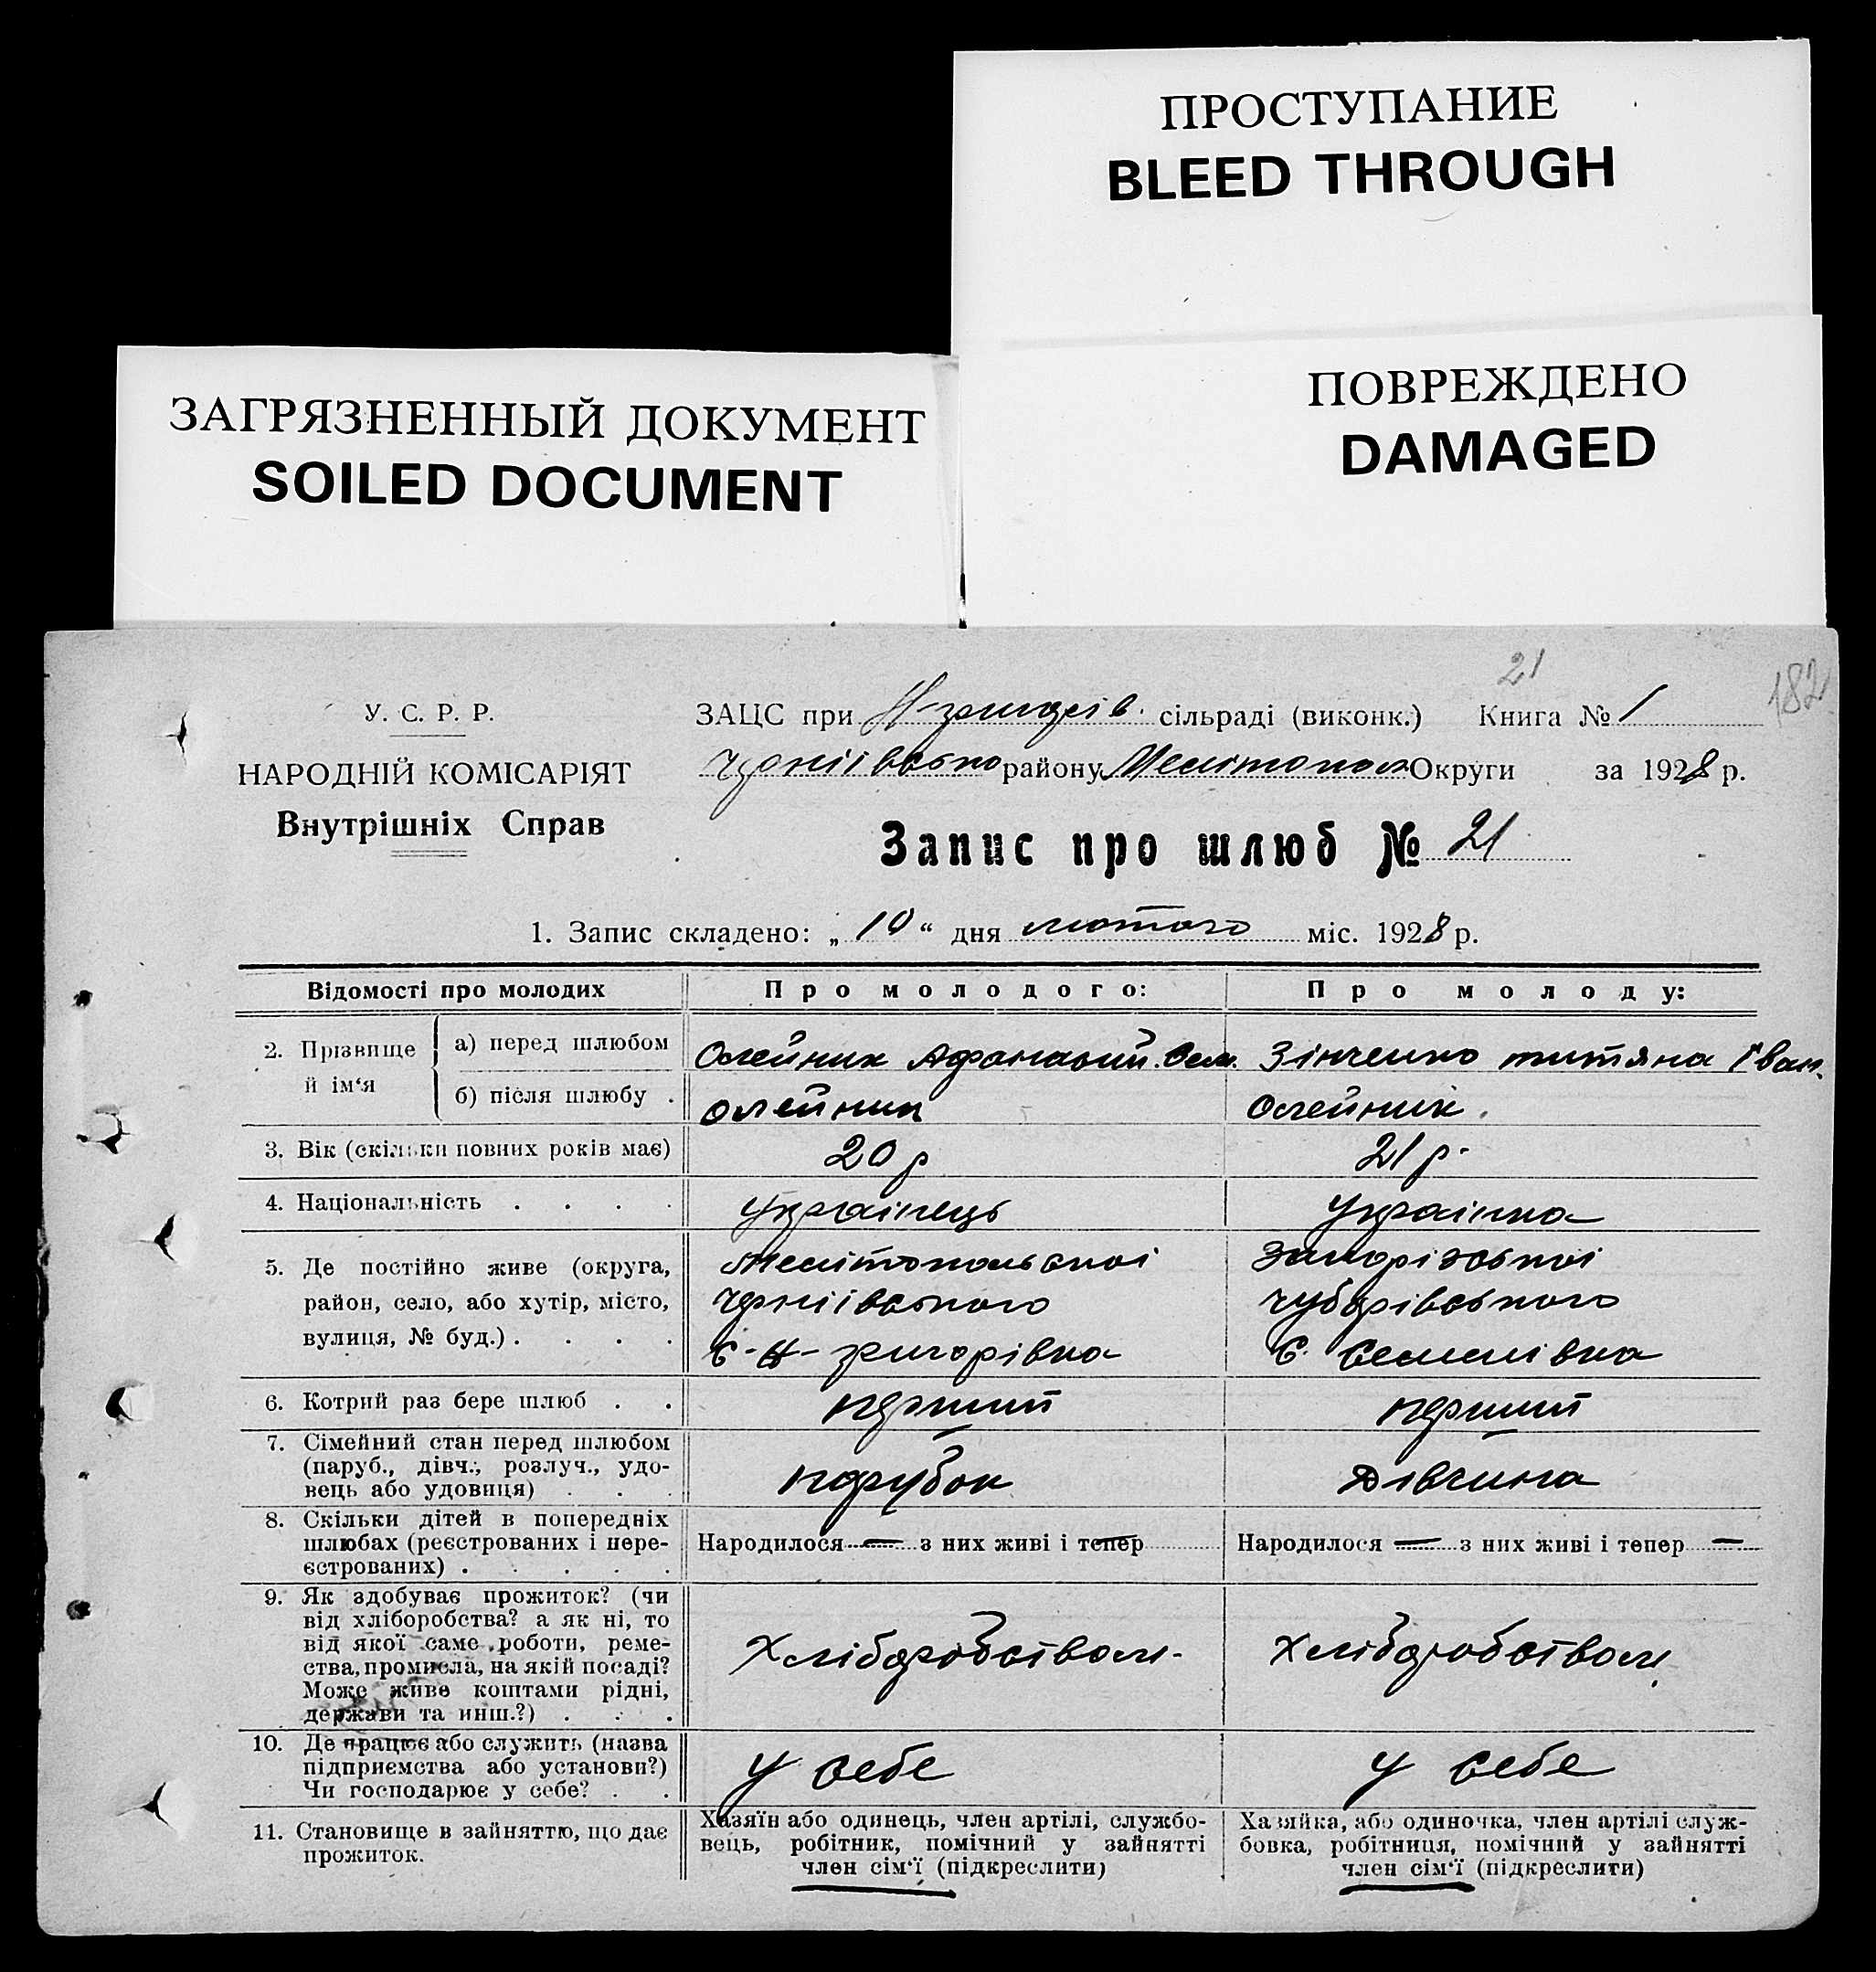 ПРОСТУПАНИЕ
BLEED THROUGH
ПОВРЕЖДЕНО
DAMAGED
ЗАГРЯЗНЕННЫЙ ДОКУМЕНТ
SOILED DOCUMENT
21
182
У. С. Р. Р.
НАРОДНІЙ КОМІСАРІЯТ
Внутрішніх Справ
ЗАЦС при Н-григорів. сільраді (виконк.) Книга № 1
Черніівсько району Мелітопол Округи за 1928 р.
Запис про шлюб № 21
1. Запис складено: „10“ дня лютого міс. 1928 р.
Відомості про молодих
Про молодого:
Про молоду:
2. Прізвище й ім‘я
а) перед шлюбом
Олейник Афанасий. Сем.
Зінченко титяна Іван.
б) після шлюбу .
олейник
Олейник.
3. Вік (скільки повних років має)
20 р
21 р.
4. Національність . . . .
Українець
Українка
5. Де постійно живе (округа,
район, село, або хутір, місто,
вулиця, № буд.) . . . .
Мелітопольскоі
Черніівського
с-Н-григорівка
Запорізськоі
Чубарівського
с. Семенівка
6. Котрий раз бере шлюб . .
перший
перший
7. Сімейний стан перед шлюбом
(паруб., дівч., розлуч., удо-
вець або удовиця) . . .
парубок
Дівчина
8. Скільки дітей в попередніх
шлюбах (реєстрованих і нере-
єстрованих) . . . . .
Народилося — з них живі і тепер —
Народилося — з них живі і тепер —
9. Як здобуває прожиток? (чи
від хліборобства? а як ні, то
від якої саме роботи, реме-
ства, промисла, на якій посаді?
Може живе коштами рідні,
держави та инш.?) . . .
Хліборобством.
Хліборобством
10. Де працює або служить (назва
підприємства або установи?)
Чи господарює у себе? . .
у себе
у себе
11. Становище в зайняттю, що дає
прожиток.
Хазяїн або одинець, член артілі, службо-
вець, робітник, помічний у зайнятті
член сім‘ї (підкреслити)
Хазяйка, або одиночка, член артілі служ-
бовка, робітниця, помічний у зайнятті
член сім‘ї (підкреслити)